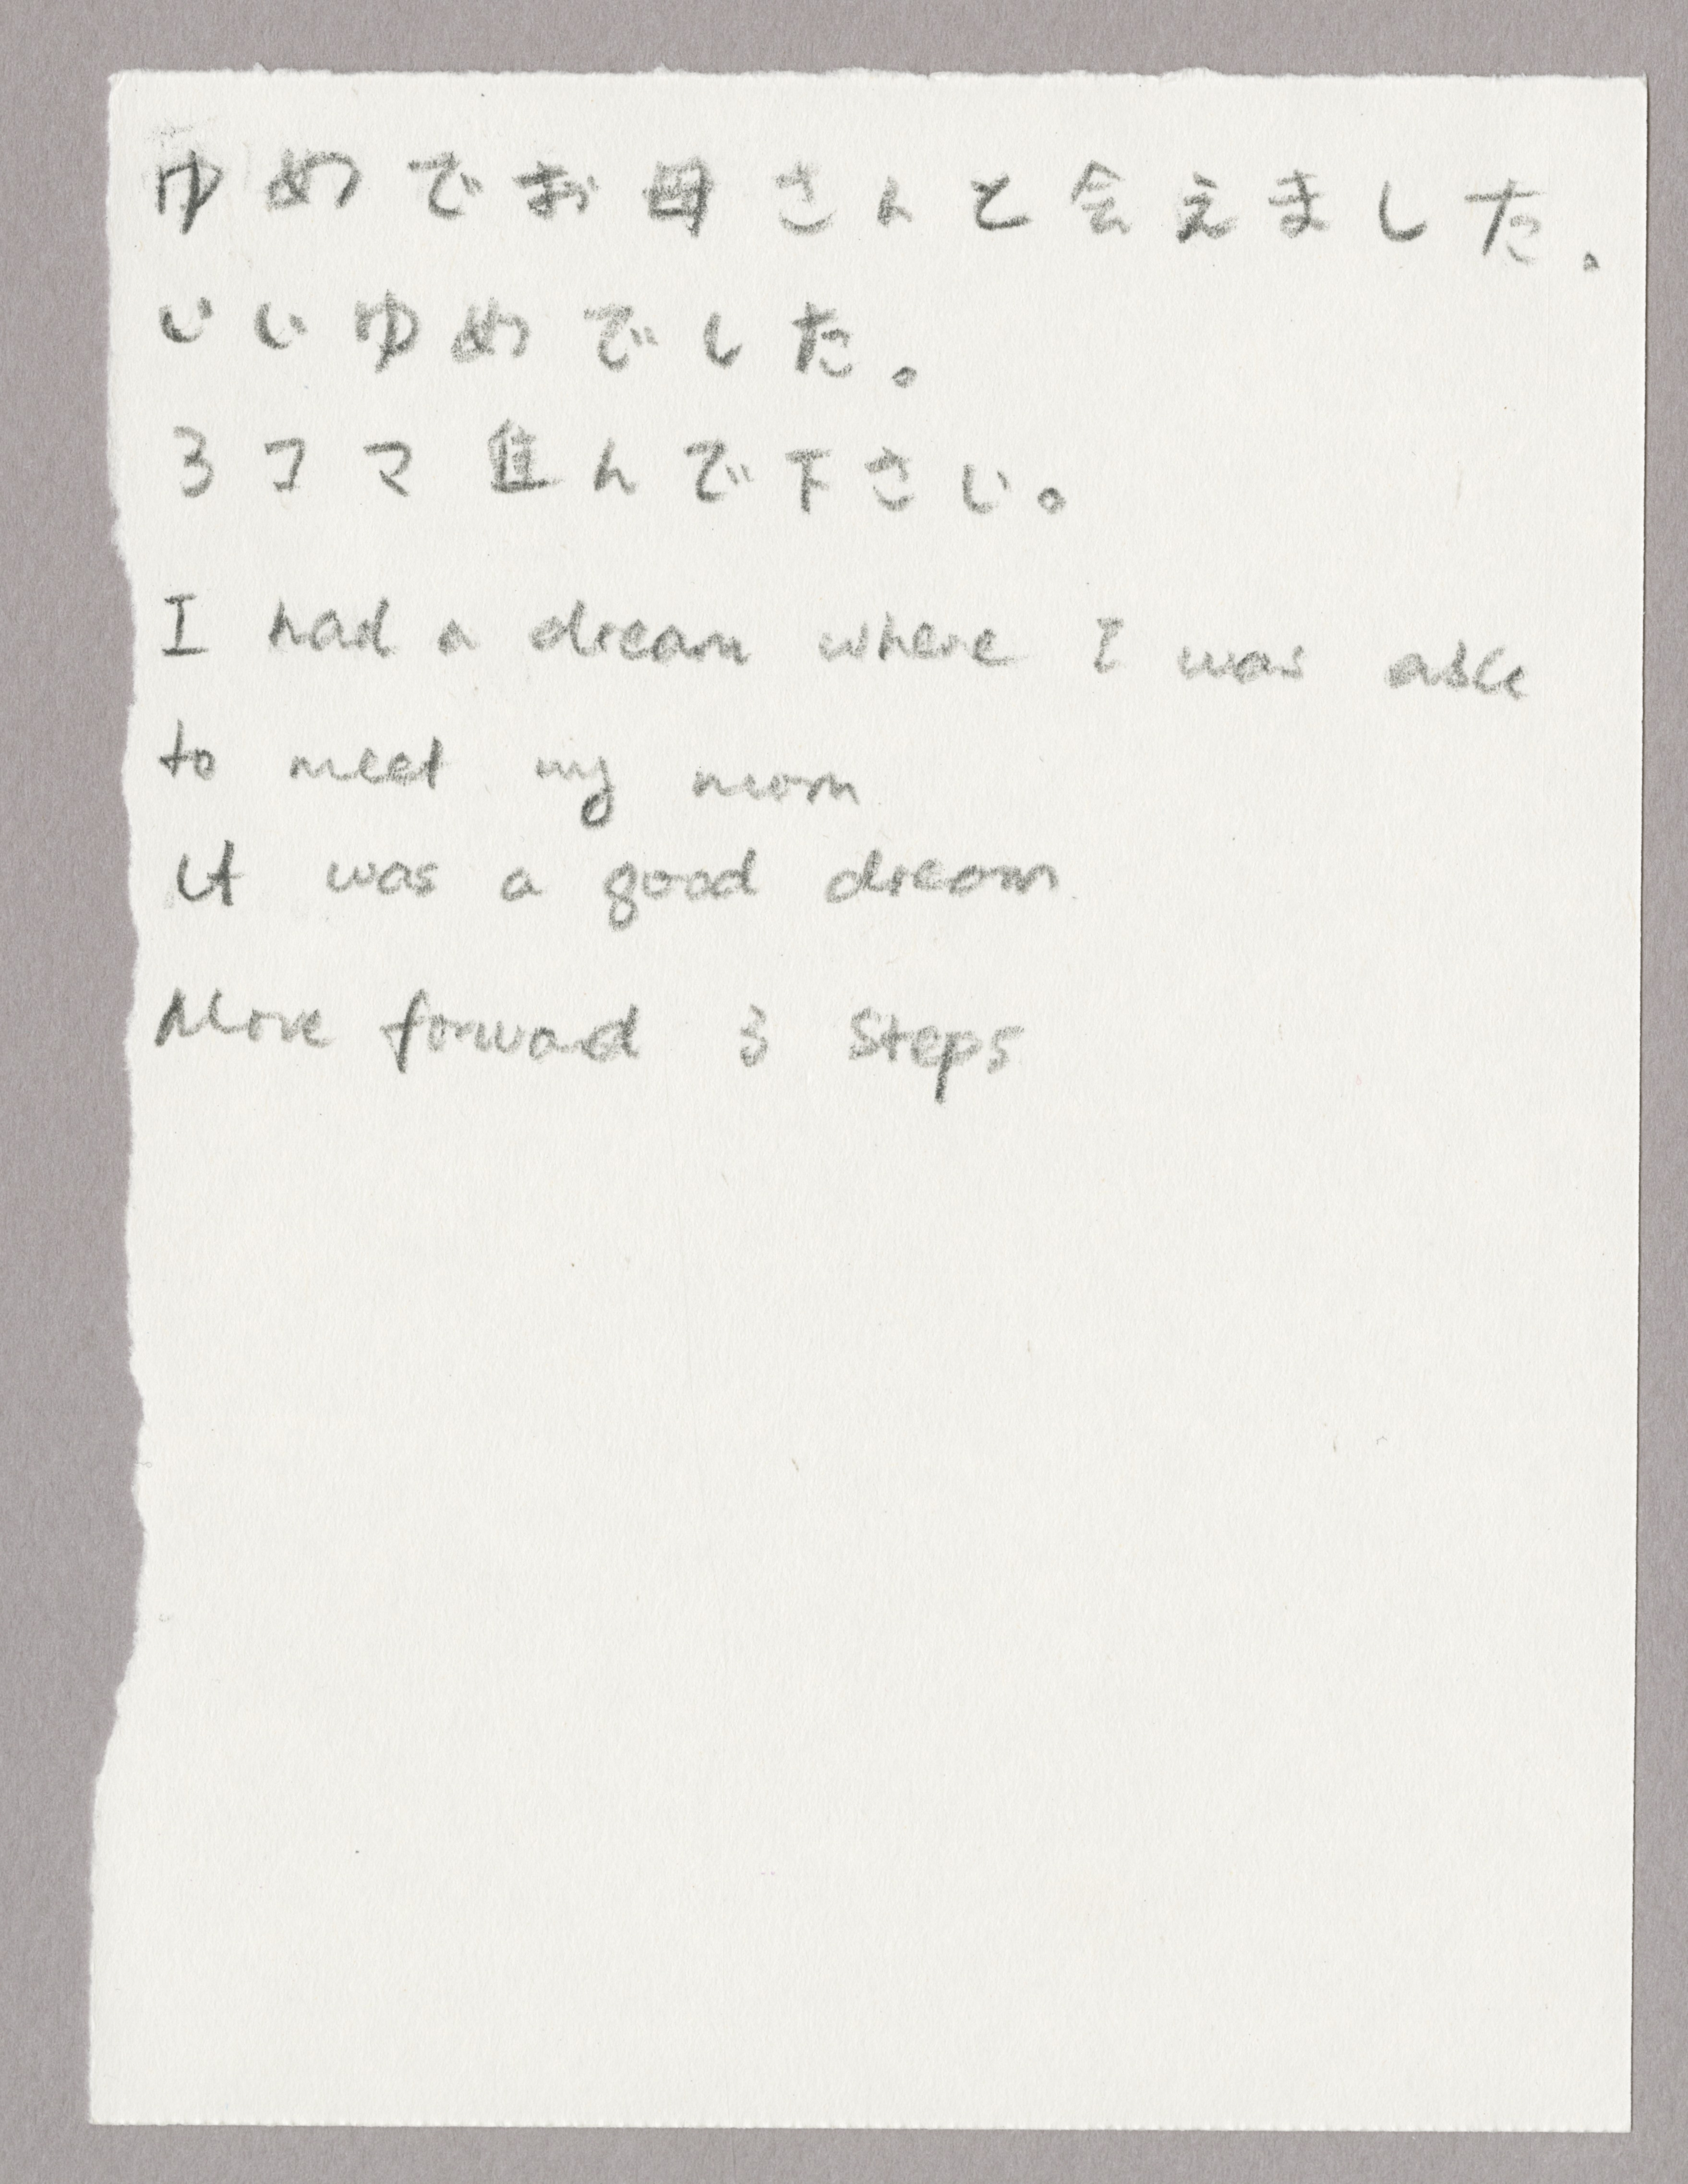 ゆめでお母さんと会えました。
いいゆめでした。
3コマ進んで下さい。
I had a dream where I was able
to meet my mom
It was a good dream
Move forward 3 Steps